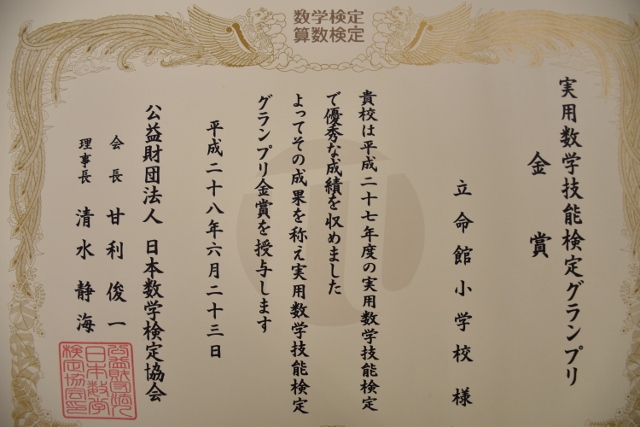 数学検定
算数検定
実用数学技能検定グランプリ
金賞
立命館小学校 様
貴校は平成二十七年度の実用数学技能検定
で優秀な成績を収めました
よってその成果を称え実用数学技能検定
グランプリ金賞を授与します
平成二十八年六月二十三日
公益財団法人 日本数学検定協会
会長 甘利俊一
理事長 清水静海
公益財団法人
日本数学
検定協会印